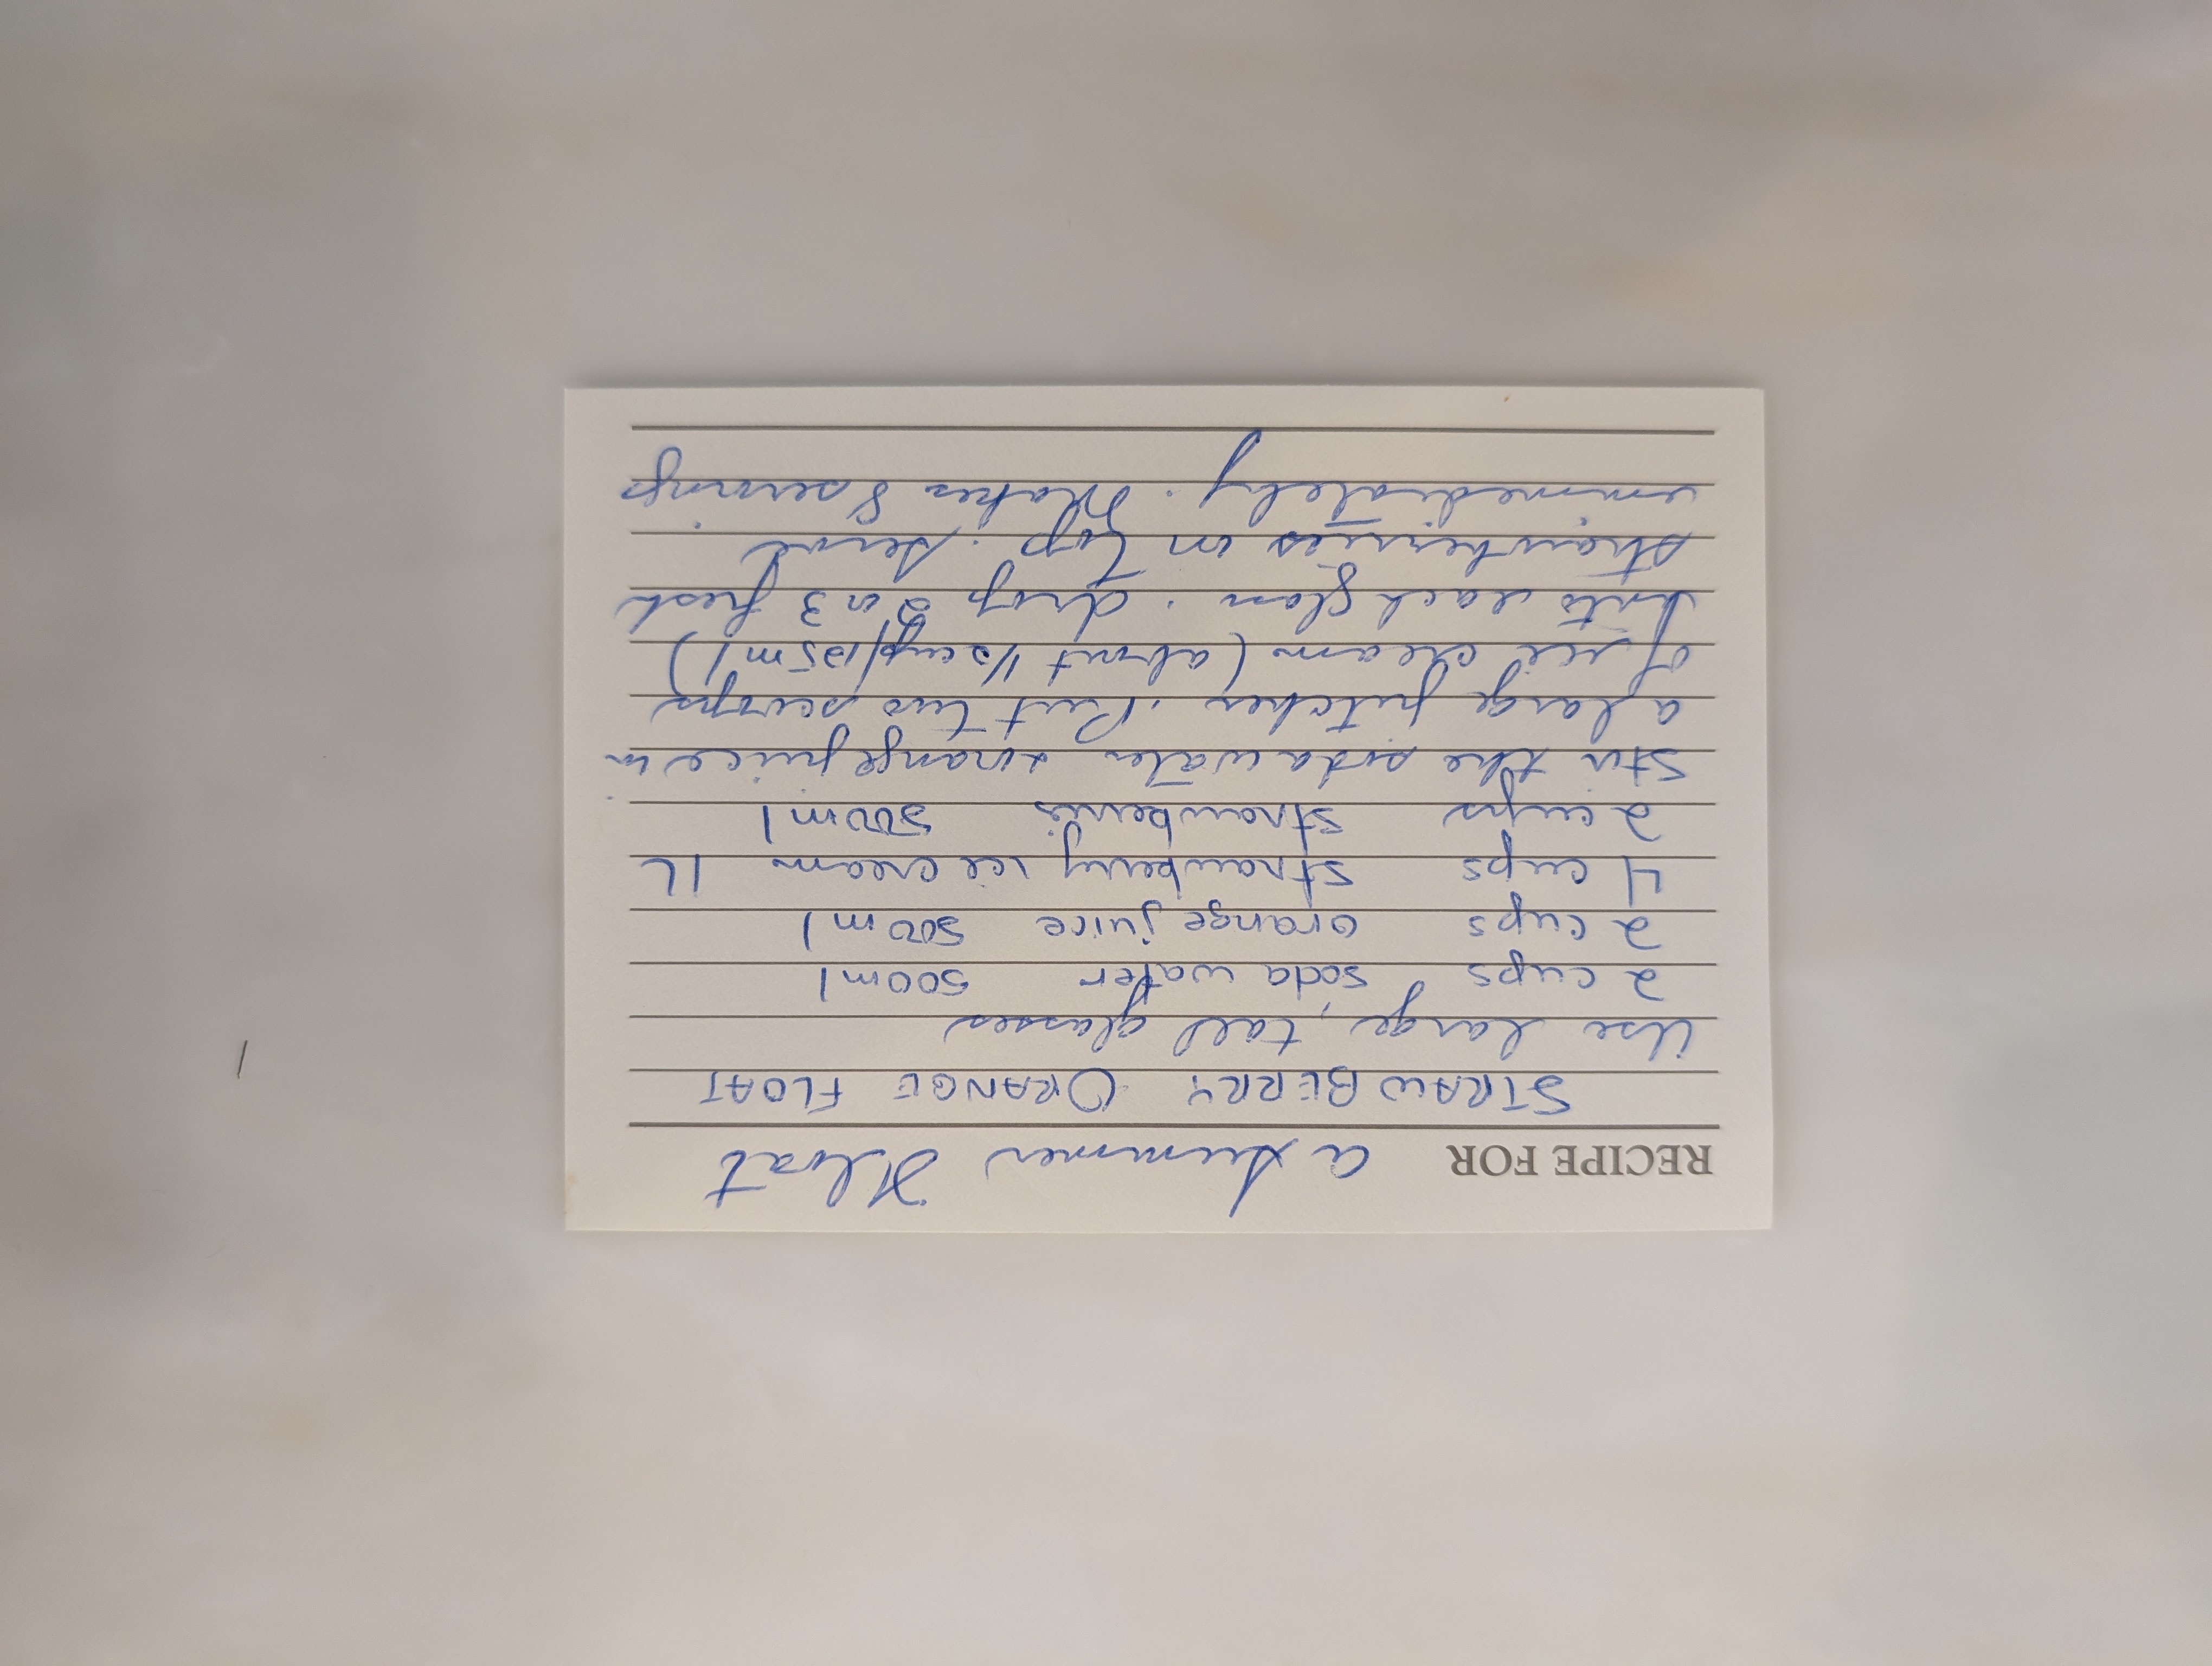 RECIPE FOR a summer Float
STRAWBERRY ORANGE FLOAT
Use large, tall glasses
2 cups soda water 500ml
2 cups orange juice 500ml
4 cups strawberry ice cream 1L
2 cups strawberries 500ml
Stir the soda water & orange juice in
a large pitcher. Put two scoops
of ice cream (about 1/2 cup/125ml)
into each glass. drop 2 or 3 fresh
strawberries on top. Serve
immediately. Makes 8 servings